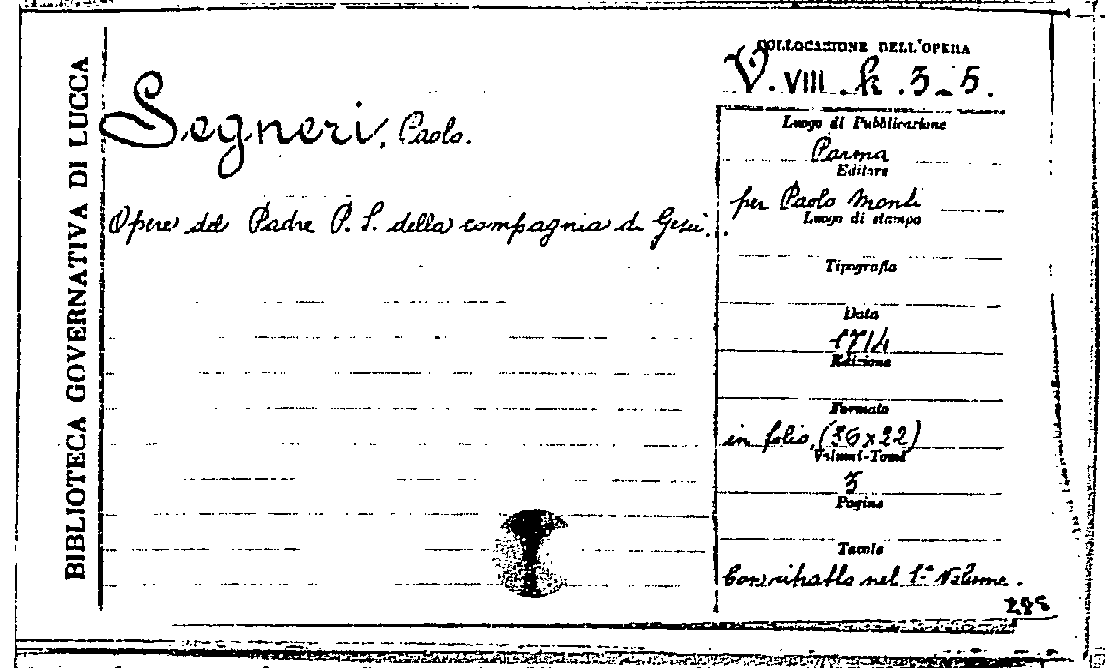 BIBLIOTECA GOVERNATIVA DI LUCCA
Segneri, Paolo.
Opere del Padre P. S. della compagnia di Gesù.
COLLOCAZIONE DELL'OPERA
V. VIII. k. 3-5.
Luogo di Pubblicazione
Parma
Editore
per Paolo Monti
Luogo di stampa
Tipografia
Data
1714
Edizione
Formato
in folio (36x22)
Volumi-Tomi
3
Pagine
Tavole
Con ritratto nel 1° Volume.